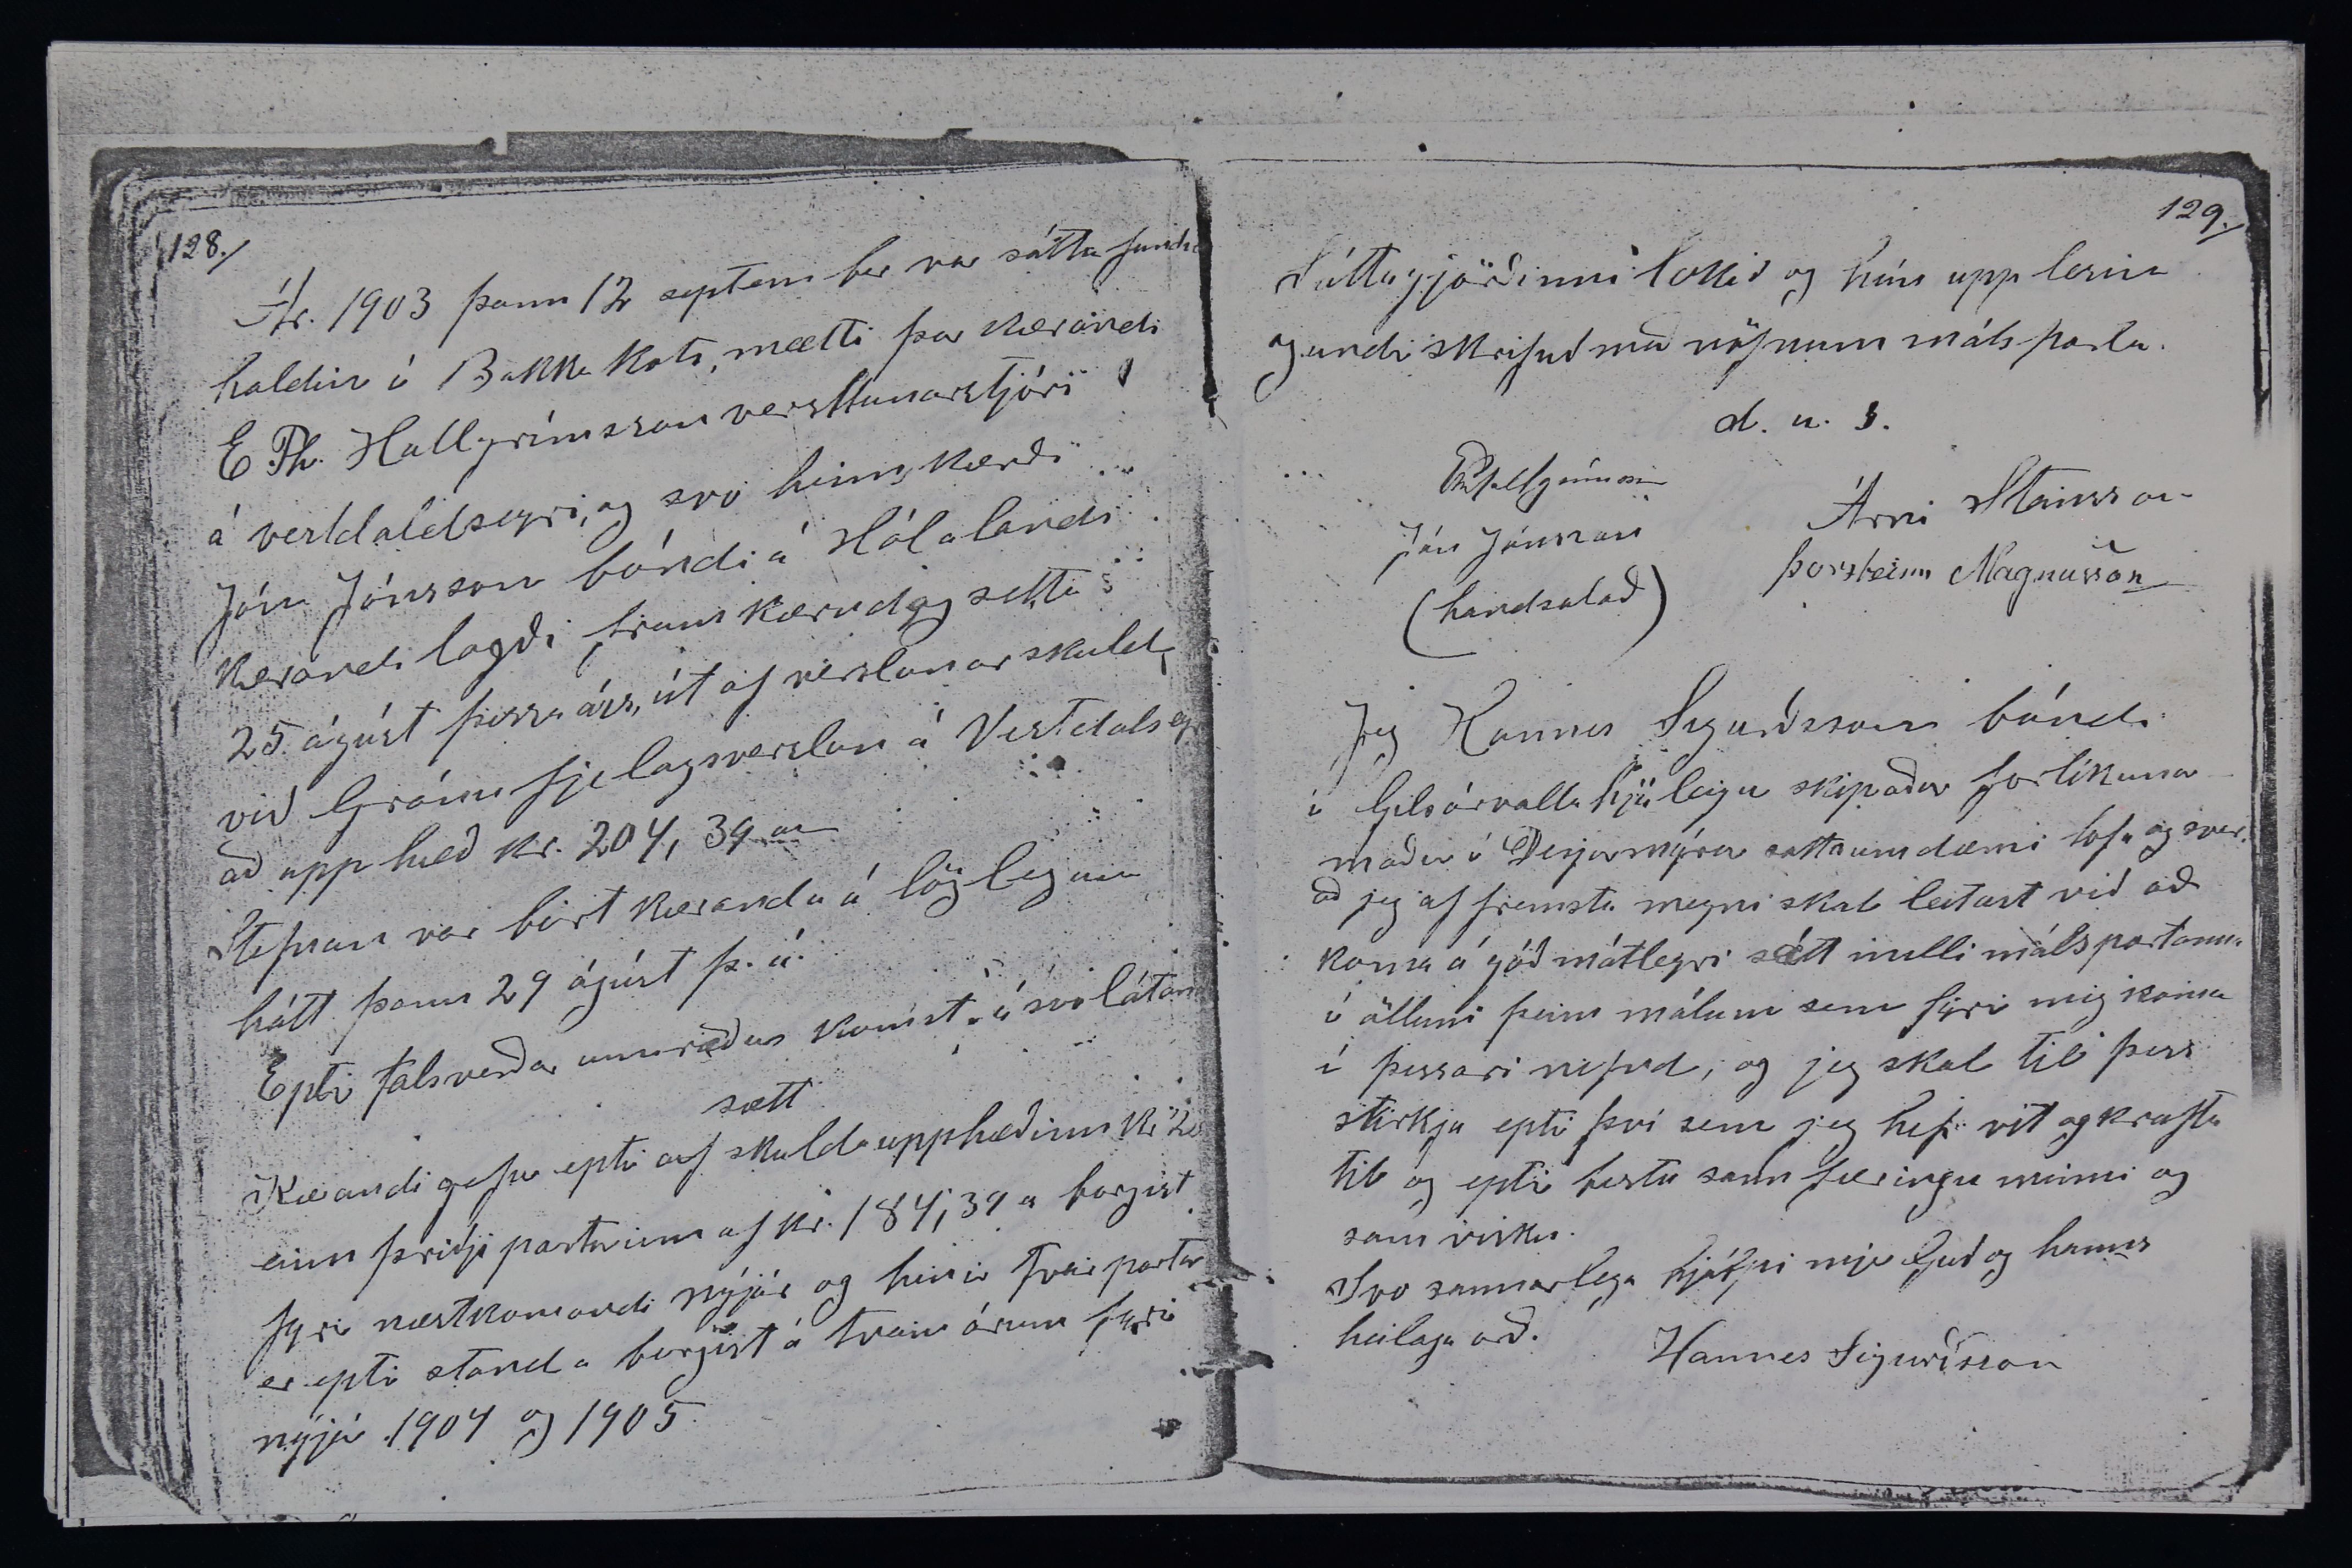 128./
Ár. 1903 þann 12 september var sáttafundur
haldin í Bakkakoti, mætti þar kærandi
E. Th. Hallgrímsson verslunarstjóri
á vestdalseyri, og svo hinn kærði
Jón Jónsson bóndi á Hólalandi
kærandi lagði fram kæru dag setta
25. ágúst þessa árs, út af verslunar skuld
við Gránufjelagsverslun á Vestdalsey
að upp hæð kr. 204,39 au
Stefnan var birt kæranda á löglegann
hátt þann 29 ágúst þ. á.
Eptir talsverðar umræður komst á svo látandi
sætt
Kærandi gefur eptir af skulda upphæðinni kr 20
einn þriðji parturinn af kr. 184,39 a borgist
fyri næstkomandi nýjár og hinir tveir partar
er eptir standa borgist á tveim árum fyri
nýjár 1904 og 1905
129./
Sáttagjörðinni lokið og hún upp lesin
og undirskrifuð með nöfnum málsparta.
d. u. s.
EThHallgrímsson
Árni Steinsson
Jón Jónsson
Þorsteinn Magnússon
(handsalað)
Jeg Hannes Sigurðsson bóndi
í Gilsárvallahjáleigu skipaður forlíkunar
maður í Desjarmýrar sáttaumdæmi lofa og sver
að jeg af fremsta megni skal leitast við að
koma á góðmótlegri sátt milli málspartanna
í öllum þeim málum sem fyri mig koma
í þessari nefnd, og jeg skal til þess
stirkja eptir því sem jeg hef vit og krafta
til og eptir bestu sannfæringu minni og
samvisku.
Svo sannarlega hjálpi mjer Guð og hanns
heilaga orð.
Hannes Sigurðsson